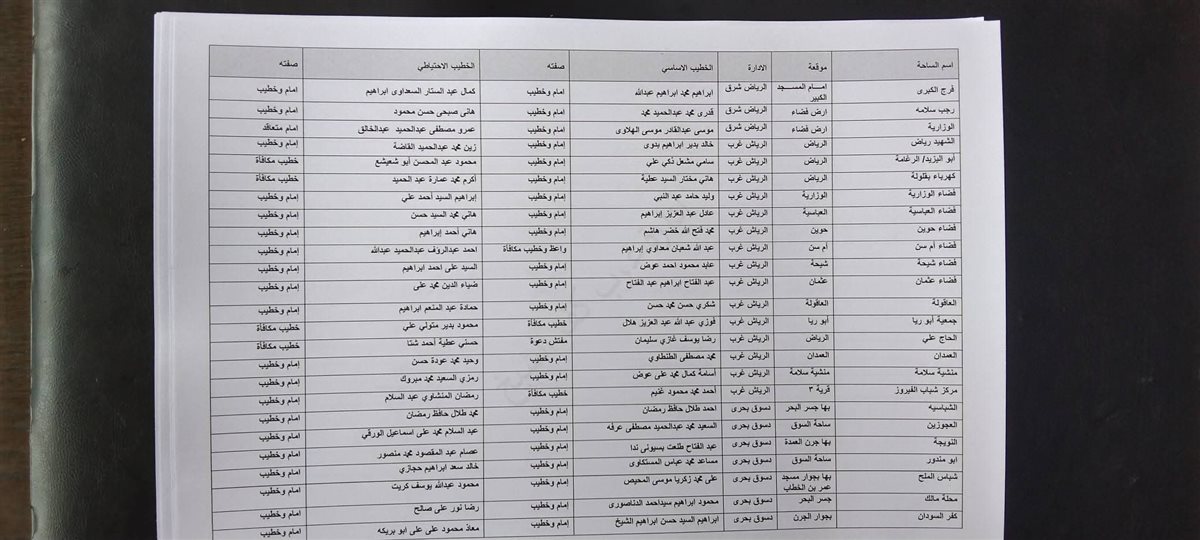 اسم الساحة موقعة الادارة الخطيب الاساسي صفته الخطيب الاحتياطي صفته
فرج الكبرى امـــام المســـجد الكبير الرياض شرق ابراهيم محمد ابراهيم عبدالله امام وخطيب كمال عبد الستار السعداوى ابراهيم امام وخطيب
رجب سلامه ارض فضاء الرياض شرق قدرى محمد عبدالحميد محمد امام وخطيب هانى صبحى حسن محمود امام وخطيب
الوزارية ارض فضاء الرياض شرق موسى عبدالقادر موسى الهلاوى امام وخطيب عمرو مصطفى عبدالحميد عبدالخالق امام متعاقد
الشهيد رياض الرياض الرياش غرب خالد بدير ابراهيم بدوى إمام وخطيب زين محمد عبدالحميد القاضة إمام وخطيب
أبو اليزيد/ الرغامة الرياض الرياش غرب سامي مشعل ذكي علي إمام وخطيب محمود عبد المحسن أبو شعيشع خطيب مكافأة
كهرباء بقلولة الرياض الرياش غرب هاني مختار السيد عطية إمام وخطيب أكرم محمد عمارة عبد الحميد خطيب مكافأة
فضاء الوزارية الوزارية الرياش غرب وليد حامد عبد النبي إمام وخطيب إبراهيم السيد أحمد علي إمام وخطيب
فضاء العباسية العباسية الرياش غرب عادل عبد العزيز إبراهيم إمام وخطيب هاني محمد السيد حسن إمام وخطيب
فضاء حوين حوين الرياش غرب محمد فتح الله خضر هاشم إمام وخطيب هاني أحمد إبراهيم إمام وخطيب
فضاء أم سن أم سن الرياش غرب عبد الله شعبان معداوي إبراهيم واعظ وخطيب مكافأة احمد عبدالرؤف عبدالحميد عبدالله إمام وخطيب
فضاء شيحة شيحة الرياش غرب عابد محمود احمد عوض إمام وخطيب السيد على احمد ابراهيم إمام وخطيب
فضاء عثمان عثمان الرياش غرب عبد الفتاح ابراهيم عبد الفتاح إمام وخطيب ضياء الدين محمد على إمام وخطيب
العاقولة العاقولة الرياش غرب شكري حسن محمد حسن إمام وخطيب حمادة عبد المنعم ابراهيم إمام وخطيب
جمعية أبو ريا أبو ريا الرياش غرب فوزي عبد الله عبد العزيز هلال خطيب مكافأة محمود بدير متولي علي خطيب مكافأة
الحاج علي الرياض الرياش غرب رضا يوسف غازي سليمان مفتش دعوة حسني عطية أحمد شتا خطيب مكافأة
العمدان العمدان الرياش غرب محمد مصطفى الطنطاوي إمام وخطيب وحيد محمد عودة حسن إمام وخطيب
منشية سلامة منشية سلامة الرياش غرب أسامة كمال محمد على عوض إمام وخطيب رمزي السعيد محمد مبروك إمام وخطيب
مركز شباب الفيروز قرية ٣ الرياش غرب أحمد محمد محمود غنيم خطيب مكافأة رمضان المنشاوي عبد السلام إمام وخطيب
الشباسيه بها جسر البحر دسوق بحرى احمد طلال حافظ رمضان إمام وخطيب محمد طلال حافظ رمضان إمام وخطيب
العجوزين ساحة السوق دسوق بحرى السعيد محمد عبدالحميد مصطفى عرفه إمام وخطيب عبد السلام محمد على اسماعيل الورقي إمام وخطيب
النويجة بها جرن العمدة دسوق بحرى عبد الفتاح طلعت بسيونى ندا إمام وخطيب عصام عبد المقصود محمد منصور إمام وخطيب
ابو مندور ساحة السوق دسوق بحرى مساعد محمد عباس المستكاوى إمام وخطيب خالد سعد ابراهيم حجازي إمام وخطيب
شباس الملح بها بجوار مسجد عمر بن الخطاب دسوق بحرى على محمد زكريا موسى المحيص إمام وخطيب محمود عبدالله يوسف كريت إمام وخطيب
محلة مالك جسر البحر دسوق بحرى محمود ابراهيم سيداحمد الدناصورى إمام وخطيب رضا نور على صالح إمام وخطيب
كفر السودان بجوار الجرن دسوق بحرى ابراهيم السيد حسن ابراهيم الشيخ إمام وخطيب معاذ محمود على على ابو بريكه امام وخطيب